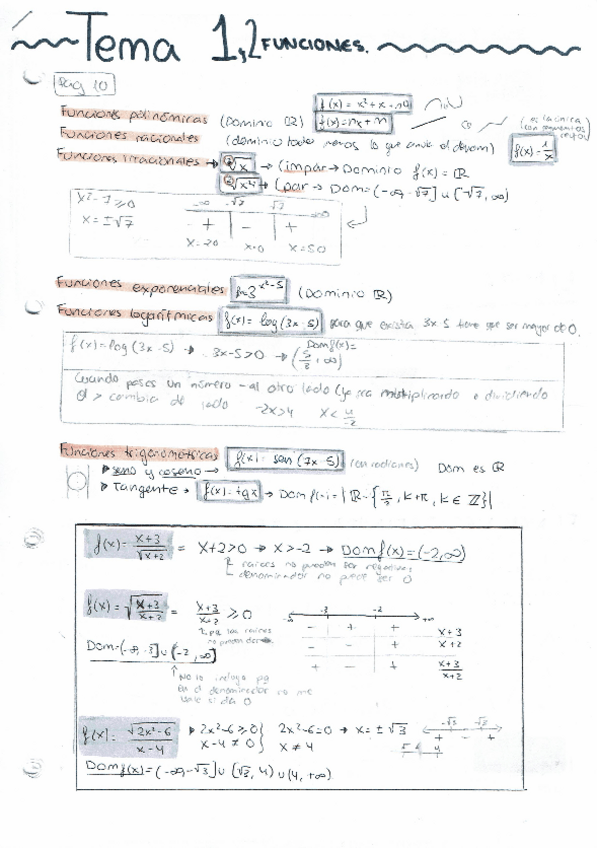 Tema 1,2 FUNCIONES.
Pag 10
Funciones polinómicas (Dominio ℝ) f(x)=x²+x+
f(x)=nx+n
Funciones racionales (dominio todo menos lo que anule el denom) f(x)=1/x
Funciones irracionales → ∛x → (impar → Dominio f(x)=ℝ
(par → Dom=(-∞,-√7] ∪ [√7,∞)
x²-7≥0
x=±√7
-∞ -√7 √7 +∞
+ - +
x=0
Funciones exponenciales f=3^(x²-5) (Dominio ℝ)
Funciones logarítmicas f(x)=log(3x-5) para que exista 3x-5 tiene que ser mayor de 0.
f(x)=log(3x-5) → 3x-5>0 → Dom f(x)= (5/3,∞)
Cuando pasas un número - al otro lado (ya sea multiplicando o dividiendo
el > cambia de lado -2x>4 x<4/-2
Funciones trigonométricas f(x)=sen(7x-5) (en radianes) Dom es ℝ
▸ seno y coseno →
▸ Tangente → f(x)=tgx → Dom f(x)=|ℝ-{π/2+kπ, k∈ℤ}|
f(x)=x+3/√x+2 = x+2>0 → x>-2 → Dom f(x)=(-2,∞)
raíces no pueden ser negativas
denominador no puede ser 0
f(x)=√x+3/x+2 = x+3/x+2 ≥0
-∞ -3 -2 +∞
- + + x+3
- - + x+2
+ - + x+3/x+2
Dom=(-∞,-3] ∪ (-2,∞)
No lo incluyo pq
en el denominador no me
vale si da 0
f(x)=√2x²-6/x-4 ▸ 2x²-6≥0 } 2x²-6=0 → x=±√3
x-4≠0 } x≠4
-√3 √3
+ - +
Dom f(x)=(-∞,-√3] ∪ [√3,4) ∪ (4,+∞)